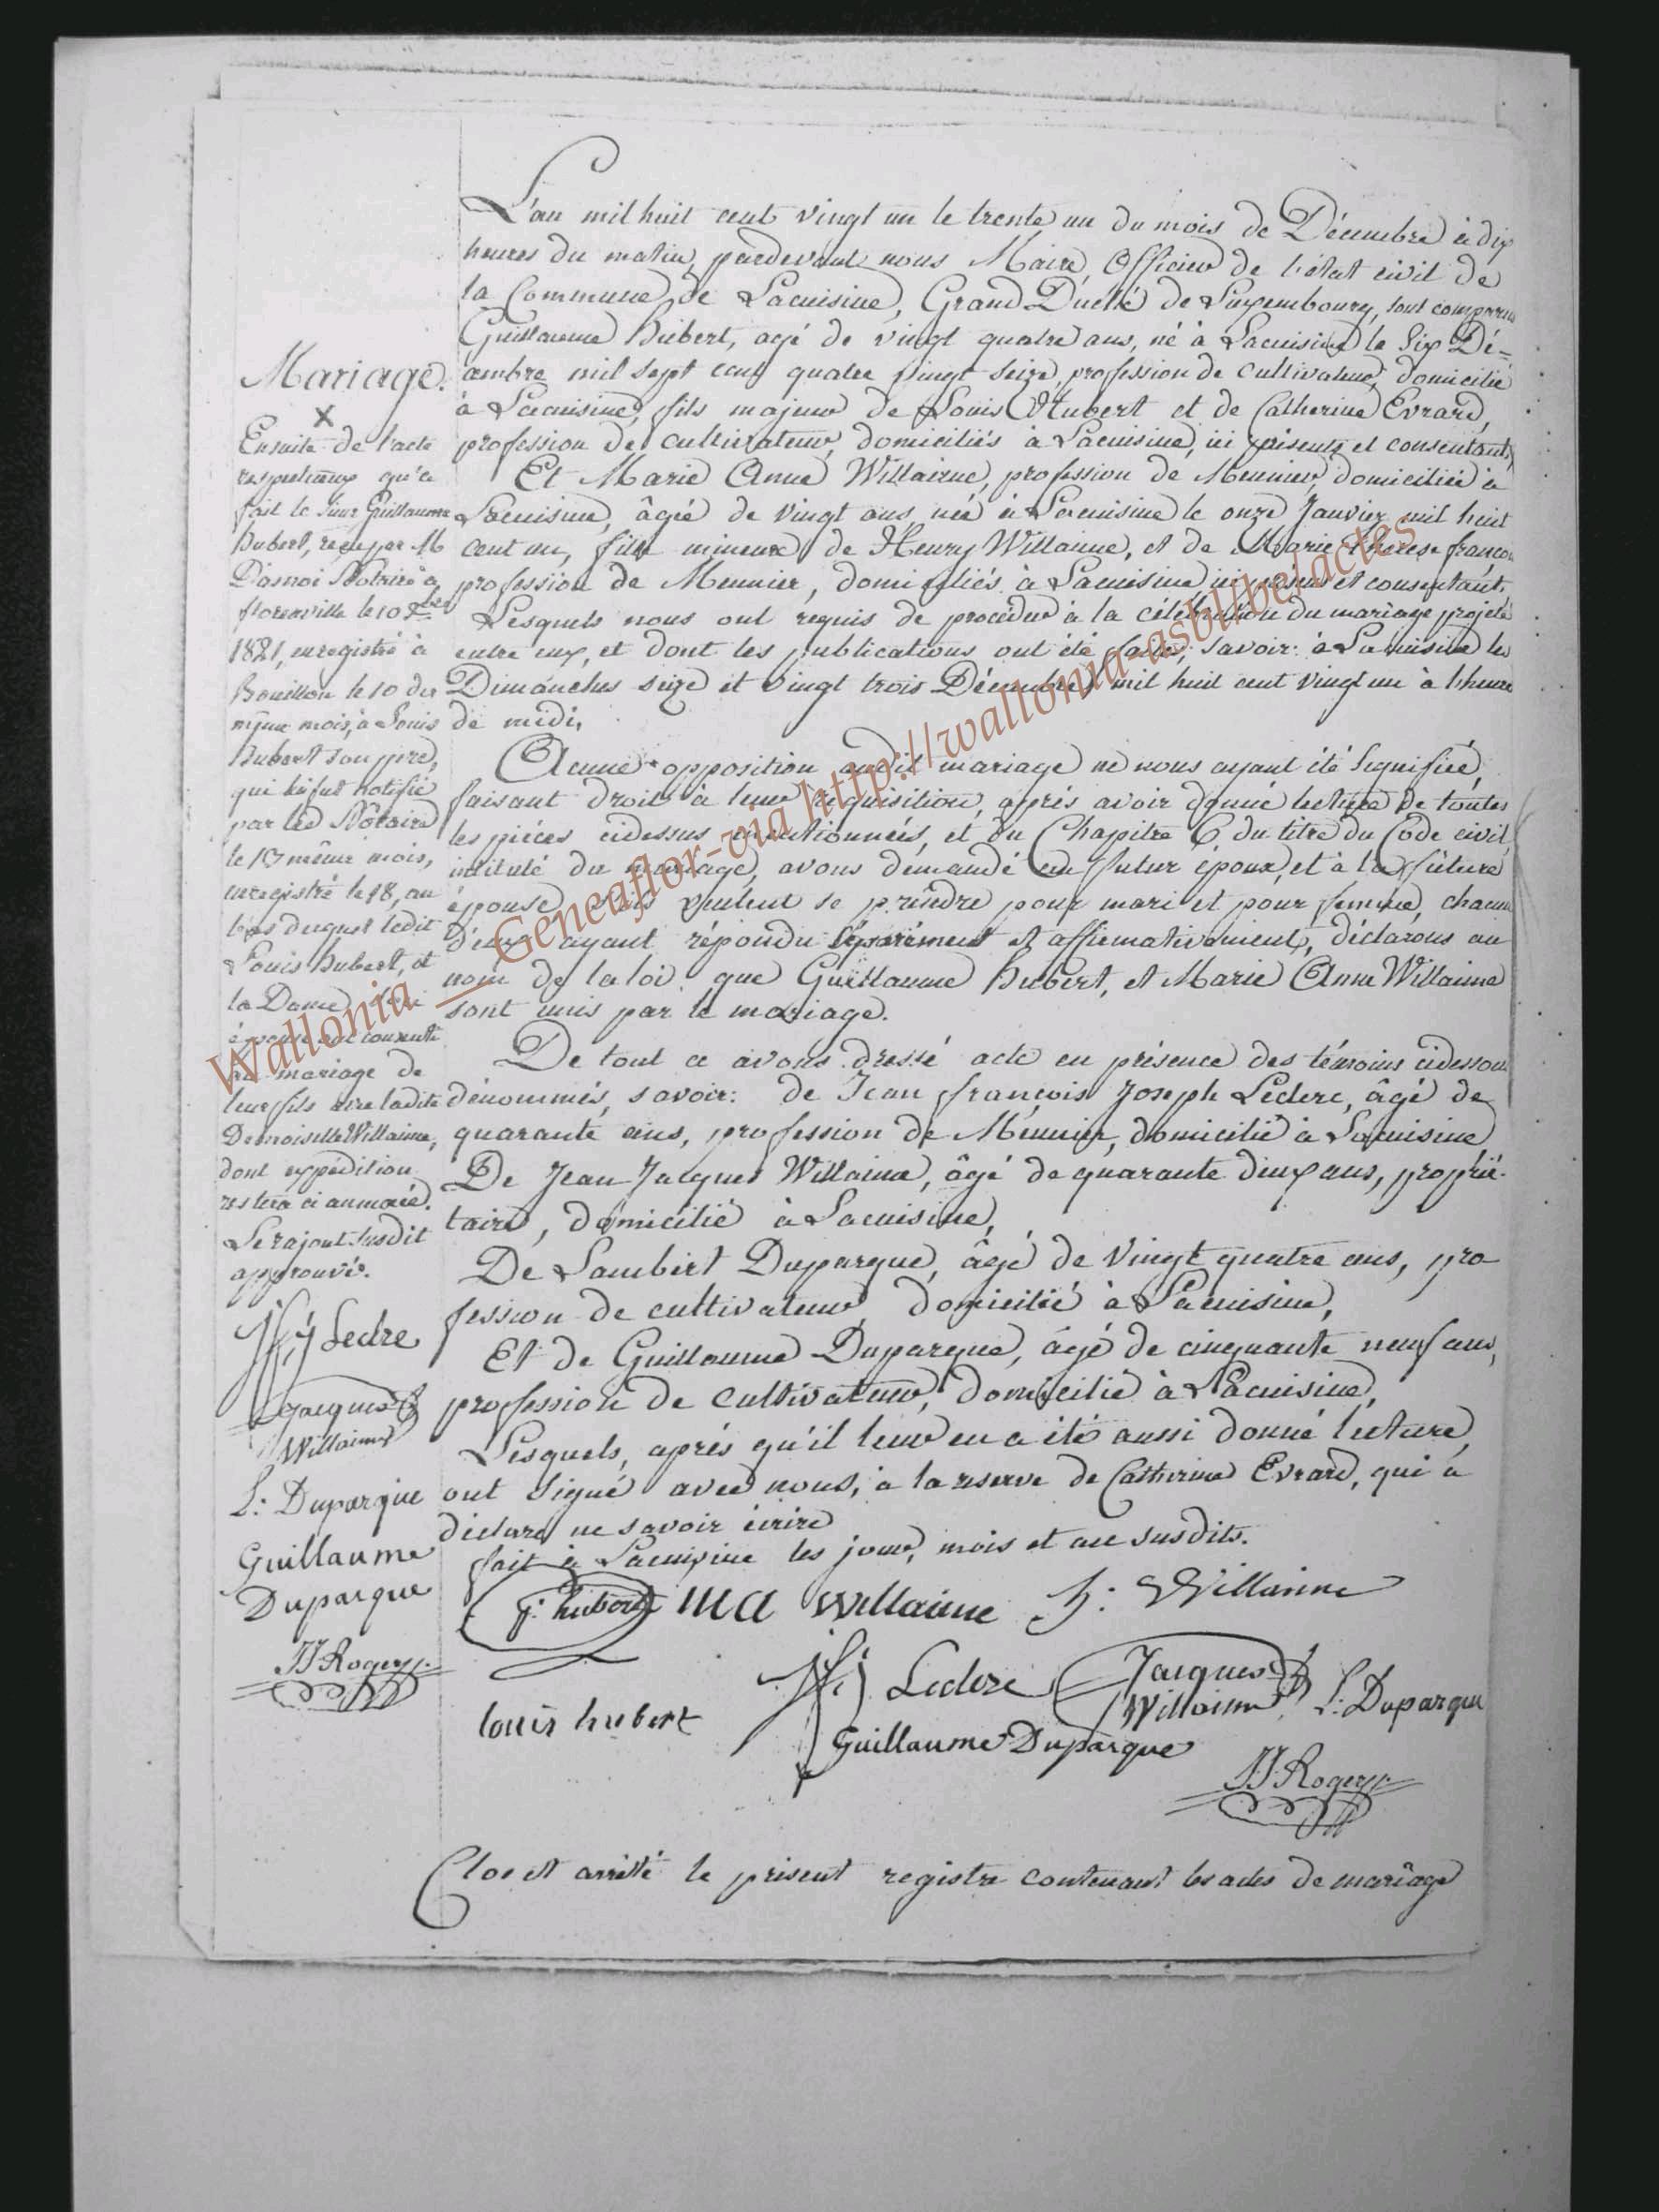 L'an mil huit cent vingt un le trente un du mois de Décembre à dix
heures du matin, pardevant nous Maire, Officier de l'état civil de
la Commune de Lacuisine, Grand Duché de Luxembourg, sont comparus
Guillaume Hubert, agé de vingt quatre ans, né à Lacuisine le six Dé=
cembre mil sept cent quatre vingt seize, profession de cultivateur, domicilié
à Lacuisine, fils majeur de Louis Hubert et de Catherine Evrard,
profession de cultivateur, domiciliés à Lacuisine, ici présents et consentants,
Et Marie Anne Willaime, profession de Meunier, domiciliée à
Lacuisine, âgée de vingt ans, née à Lacuisine le onze Janvier mil huit
cent un, fille mineure de Henry Willaime, et de Marie Therese françois
profession de Meunier, domiciliés à Lacuisine ici présents et consentant,
Lesquels nous ont requis de procéder à la célébration du mariage projeté
entre eux, et dont les publications ont été faites, savoir: à Lacuisine les
Dimanches seize et vingt trois Décembre mil huit cent vingt un à l'heure
de midi,
Aucune opposition audit mariage ne nous ayant été signifiée,
faisant droit à leur réquisition, après avoir donné lecture de toutes
les pièces cidessus mentionnées, et du Chapitre 6 du titre du Code civil,
intitulé du mariage, avons demandé au futur époux, et à la future
épouse s'ils veulent se prendre pour mari et pour femme, chacun
d'eux ayant répondu séparément et affirmativement, déclarons au
nom de la loi que Guillaume Hubert, et Marie Anne Willaime
sont unis par le mariage.
De tout ce avons dressé acte en présence des témoins cidessous
dénommés, savoir: de Jean françois Joseph Leclerc, âgé de
quarante ans, profession de Meunier, domicilié à Lacuisine
De Jean Jacques Willaime, âgé de quarante deux ans, proprié-
taire, domicilié à Lacuisine,
De Lambert Duparque, âgé de vingt quatre ans, pro
fession de cultivateur domicilié à Lacuisine,
Et de Guillaume Duparque, âgé de cinquante neuf ans,
profession de cultivateur, domicilié à Lacuisine,
Lesquels, après qu'il leur en a été aussi donné lecture,
ont signé avec nous, à la reserve de Catherine Evrard, qui a
déclaré ne savoir écrire
fait à Lacuisine les jour, mois et an susdits.
G: hubert MA Willaime h: Willaime
louis hubert JfJ Leclere Jacques Willaime L: Duparque
Guillaume Duparque
JJ Rogery
Clos et arrêté le présent registre contenant les actes de mariage
Mariage.
X
Ensuite de l'acte
respectueux qu'a
fait le sieur Guillaume
hubert, reçu par M
Notaire à
florenville le 10 Xbre
1821, enregistré à
Bouillon le 10 du
même mois, à Louis
hubert son père,
qui lui fut notifié
par led. Notaire
le 13 même mois,
enregistré le 18, au
bas duquel ledit
Louis hubert, et
la Dame
épouse ont consenti
au mariage de
leur fils avec ladite
Demoiselle Willaime,
dont expédition
restera ci annexée.
Le rajout susdit
approuvé.
JfJ Leclre
Jacques
Willaime
L: Duparque
Guillaume
Duparque
JJ Rogery
Wallonia _ Geneaflor-via http://wallonia-asbl.be/actes